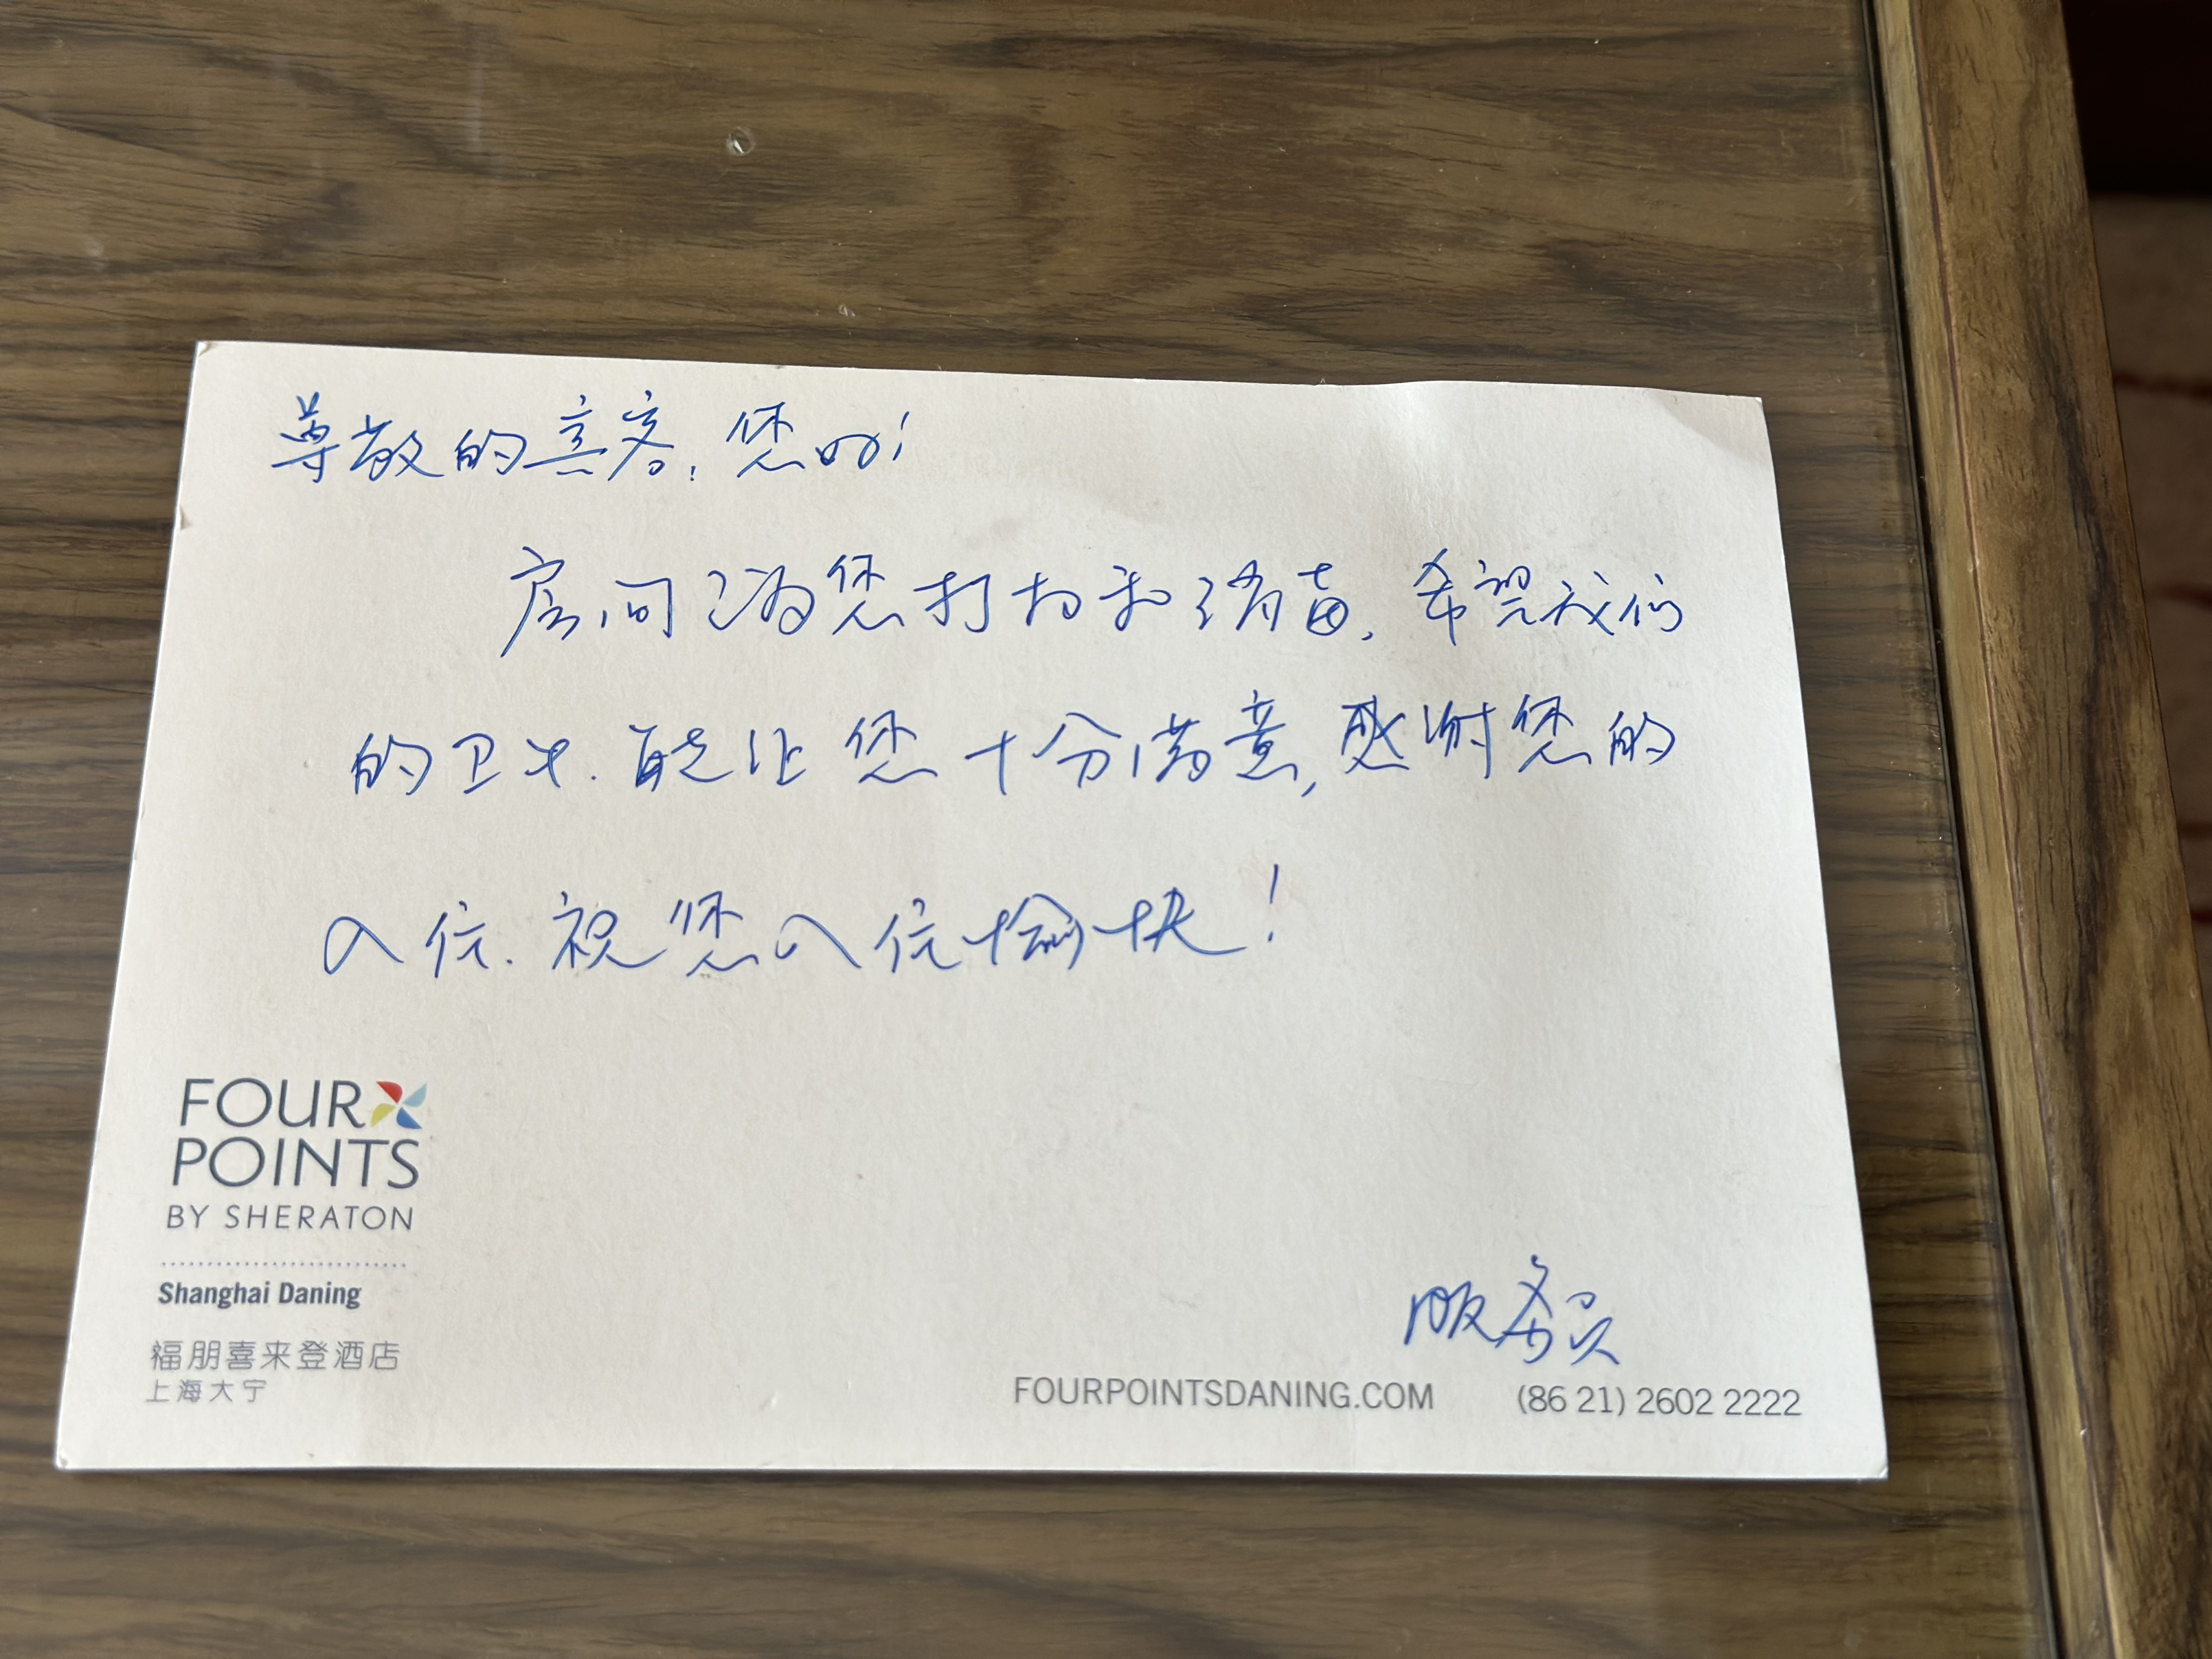 尊敬的宾客：您好！
房间已为您打扫和消毒，希望我们
的卫生，能让您十分满意，感谢您的
入住，祝您入住愉快！
FOUR
POINTS
BY SHERATON
Shanghai Daning
福朋喜来登酒店
上海大宁
服务员
FOURPOINTSDANING.COM (86 21) 2602 2222